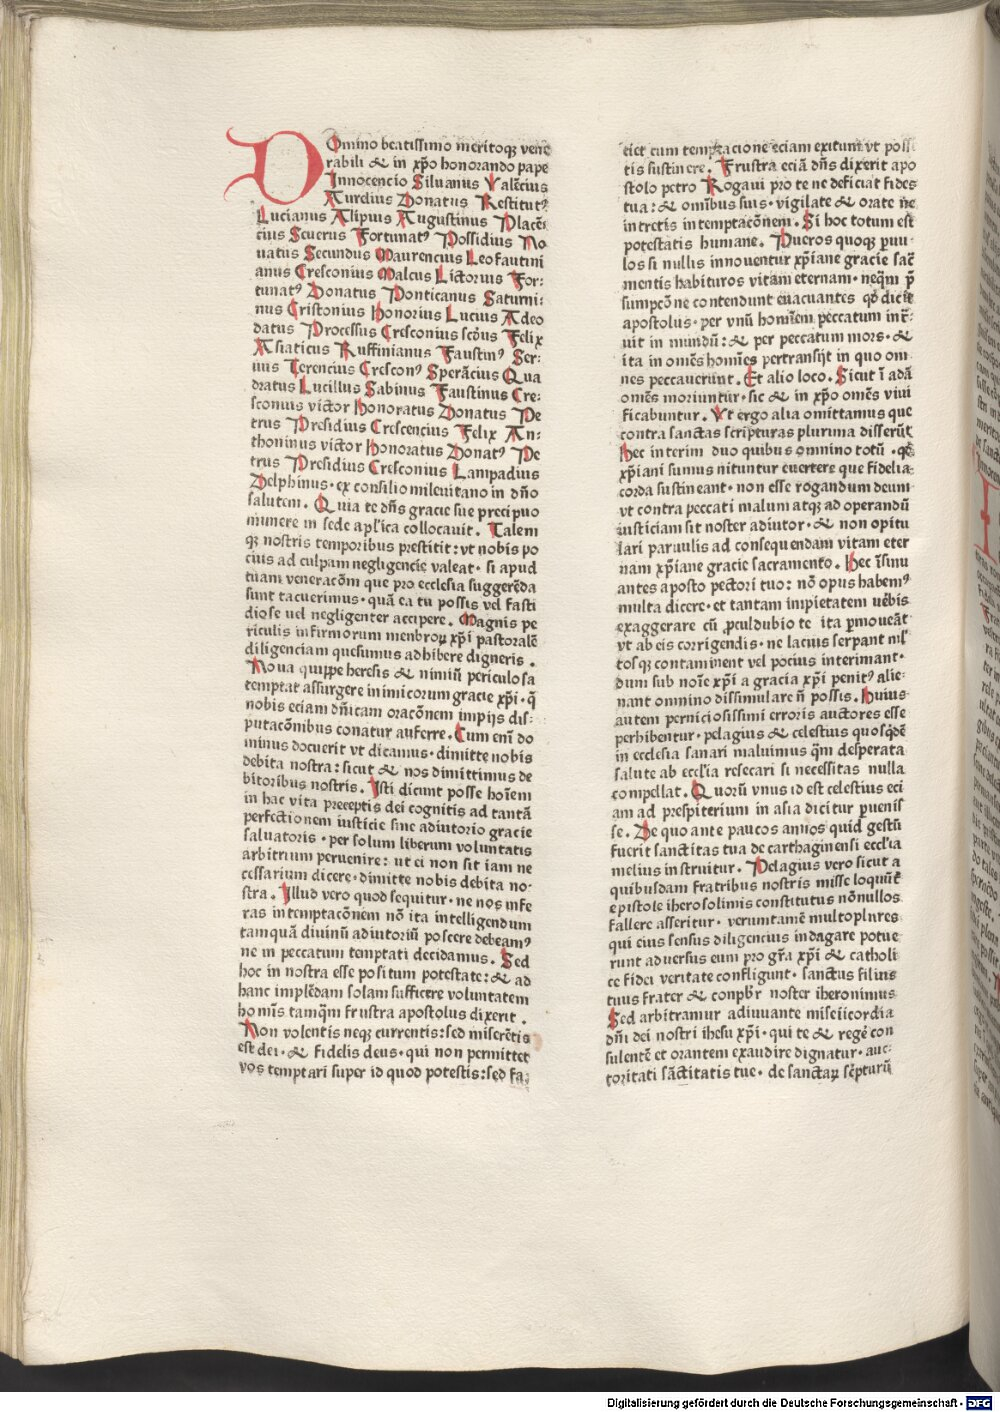 DOmino beatissimo meritoqꝫ vene
rabili & in xp̄o honorando pape
Innocencio Siluanus Valēcius
Aurelius Donatus Restitutꝰ
Lucianus Alipius Augustinus Placē
cius Seuerus Fortunatꝰ Possidius No
uatus Secundus Maurencius Leo faustini
anus Cresconius Malcus Lictorius For:
tunatꝰ Donatus Ponticanus Saturni:
nus Cristonius Honorius Lucius Adeo
datus Processus Cresconius scd̄us Felix
Asiaticus Ruffinianus Faustinꝰ Ser:
uus Terencius Cresconꝰ Sperācius Qua
dratus Lucillus Sabinus Faustinus Cre:
sconius victor Honoratus Donatus Pe
trus Presidius Crescencius Felix An:
thoninus victor Honoratus Donatꝰ Pe
trus Presidius Cresconius Lampadius
Delphinus · ex consilio mileuitano in dn̄o
salutem . Quia te dn̄s gracie sue precipuo
munere in sede apl'ica collocauit . Talem
qꝫ nostris temporibus prestitit : vt nobis po
cius ad culpam negligencie valeat · si apud
tuam veneracōm que pro ecclesia suggerēda
sunt tacuerimus · quā ea tu possis vel fasti
diose uel negligenter accipere . Magnis pe
riculis infirmorum menbroꝝ xp̄i pastoralē
diligenciam quesumus adhibere digneris .
Noua quippe heresis & nimiū periculosa
temptat assurgere inimicorum gracie xp̄i · q̄
nobis eciam dn̄icam oracōnem impijs dis-
putacōnibus conatur auferre . Cum enī do
minus docuerit vt dicamus · dimitte nobis
debita nostra : sicut & nos dimittimus de
bitoribus nostris . Isti dicunt posse hoīem
in hac vita preceptis dei cognitis ad tantā
perfectionem iusticie sine adiutorio gracie
saluatoris · per solum liberum voluntatis
arbitrium peruenire : ut ei non sit iam ne
cessarium dicere · dimitte nobis debita no-
stra . Illud vero quod sequitur · ne nos infe
ras in temptacōnem nō ita intelligendum
tamquā diuinū adiutoriū poscere debeamꝰ
ne in peccatum temptati decidamus . Sed
hoc in nostra esse positum potestate : & ad
hanc implēdam solam sufficere voluntatem
hominis tamqm̄ frustra apostolus dixerit .
Non volentis neqꝫ currentis : sed miserētis
est dei · & fidelis deus · qui non permittet
vos temptari super id quod potestis : sed fa-
ciet cum temptacione eciam exitum vt possi
tis sustinere . Frustra eciā dn̄s dixerit apo
stolo petro Rogaui pro te ne deficiat fides
tua : & omībus suis · vigilate & orate ne
intretis in temptacōnem . Si hoc totum est
potestatis humane . Pueros quoqꝫ ꝑuu-
los si nullis innouentur xp̄iane gracie sac̄
mentis habituros vitam eternam · neqm̄ p̄
sumpcōne contendunt euacuantes qd̄ dicit
apostolus · per vnū hominem peccatum int̄
uit in mundū : & per peccatum mors · &
ita in omēs homines pertransijt in quo om-
nes peccauerunt . Et alio loco . Sicut ī adā
omēs moriuntur · sic & in xp̄o omēs viui
ficabuntur . Vt ergo alia omittamus que
contra sanctas scripturas plurima disserūt
Hec interim duo quibus omnino totū · qd̄
xp̄iani sumus nituntur euertere que fidelia
corda sustineant · non esse rogandum deum
vt contra peccati malum atqꝫ ad operandū
iusticiam sit noster adiutor · & non opitu
lari paruulis ad consequendam vitam eter
nam xp̄iane gracie sacramento . Hec īsinu
antes aposto pectori tuo : nō opus habemꝰ
multa dicere · et tantam impietatem uēbis
exaggerare cū ꝓculdubio te ita ꝑmoueāt
vt ab eis corrigendis · ne lacius serpant ml'
tosqꝫ contaminent vel pocius interimant ·
dum sub noīe xp̄i a gracia xp̄i penitꝰ alie-
nant omnino dissimulare n̄ possis . Huius
autem perniciosissimi erroris auctores esse
perhibentur · pelagius & celestius quos qd̄e
in ecclesia sanari maluimus qm̄ desperata
salute ab eccl'ia resecari si necessitas nulla
compellat . Quorū vnus id est celestius eci
am ad prespiterium in asia dicitur ꝑuenis
se . De quo ante paucos annos quid gestū
fuerit sanctitas tua de carthaginensi eccl'ia
melius instruitur . Pelagius vero sicut a
quibusdam fratribus nostris misse loqunt̄
epistole iherosolimis constitutus nōnullos
fallere asseritur · verumtamē multo plures
qui eius sensus diligencius indagare potue
runt aduersus eum pro gr̄a xp̄i & catholi
ce fidei veritate confligunt · sanctus filius
tuus frater & conpbr̄ noster iheronimus
Sed arbitramur adiuuante misericordia
dn̄i dei nostri ihesu xp̄i · qui te & regē con
sulentē et orantem exaudire dignatur · auc-
toritati sāctitatis tue · de sanctaꝝ sc̄pturū